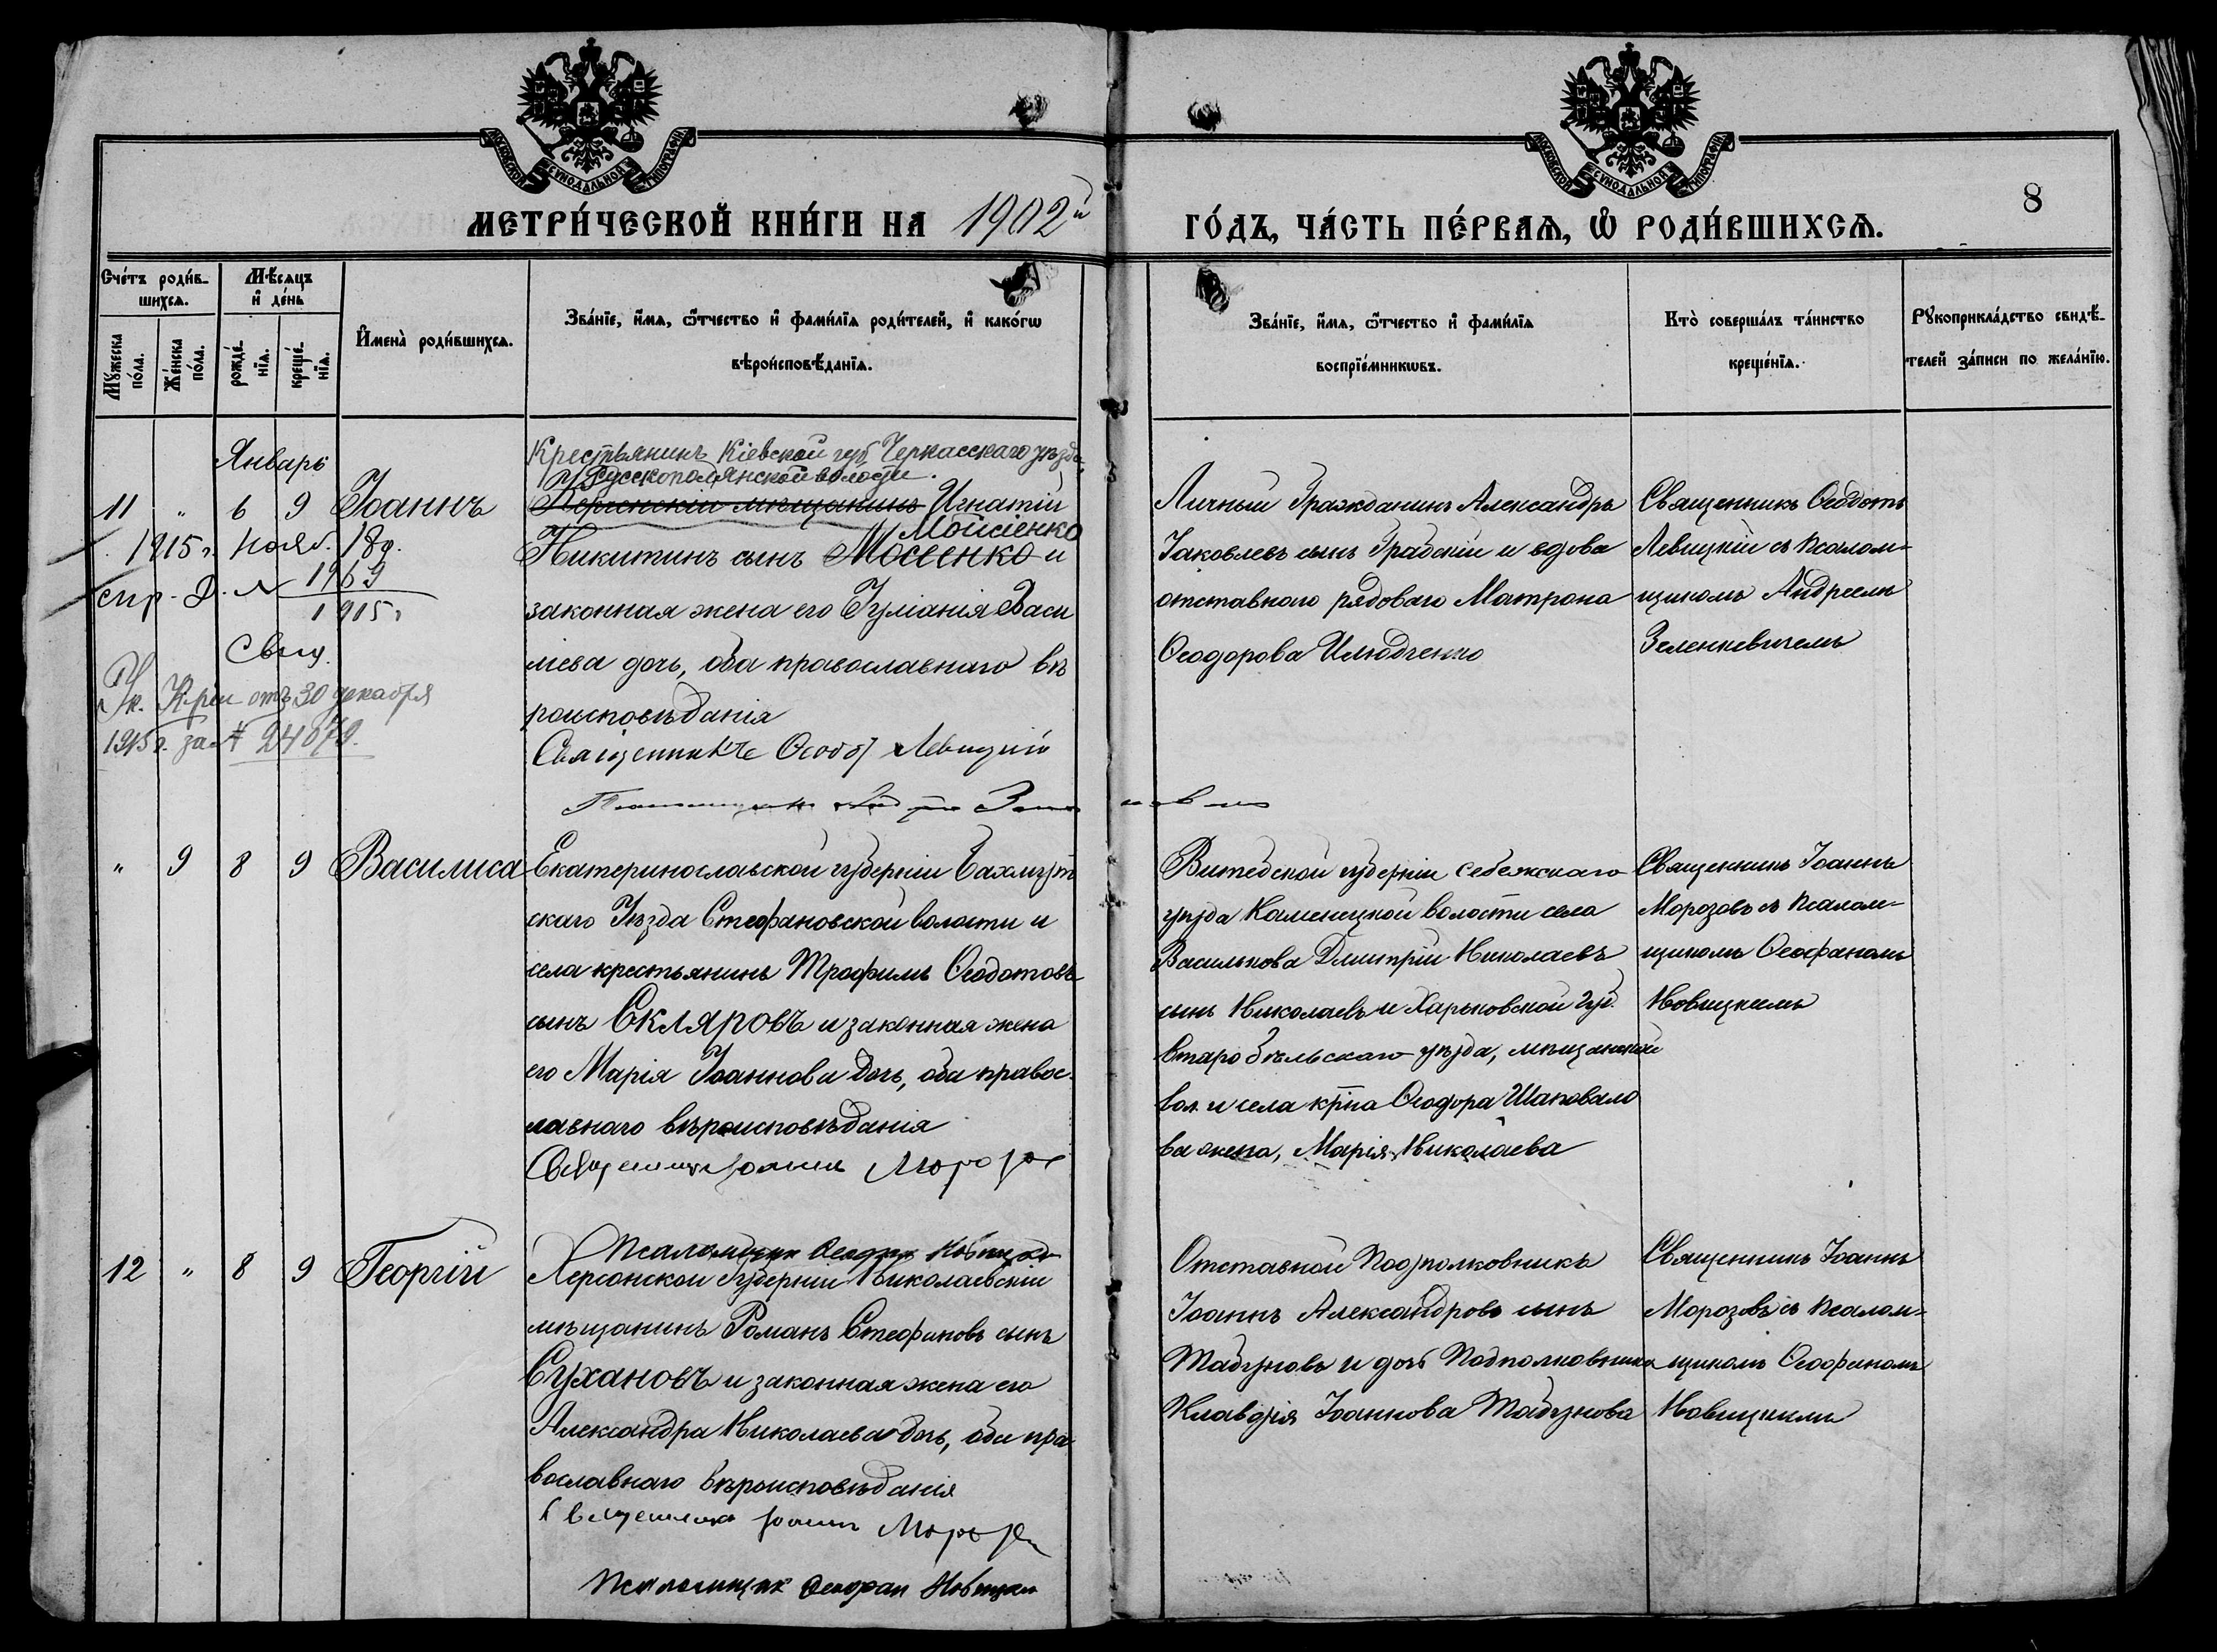 МОСКОВСКОЙ СѴНОДАЛЬНОЙ ТИПОГРАФІИ
МОСКОВСКОЙ СѴНОДАЛЬНОЙ ТИПОГРАФІИ
МЕТРИ́ЧЕСКОЙ КНИ́ГИ НА 1902й
ГО́ДЪ, ЧА́СТЬ ПЕ́РВАѦ, Ѡ РОДИ́ВШИХСѦ.
8
Сче́тъ роди́в-
шихсѧ.
Мѣ́сѧцъ
и҆ де́нь
Мꙋ́жеска по́ла.
Же́нска по́ла.
рожде́-
нїѧ.
креще́-
нїѧ.
И҆мена̀ роди́вшихсѧ.
Зва́нїе, и҆́мѧ, ѻ҆́тчество и҆ фами́лїѧ роди́телей, и҆ како́гѡ
вѣроисповѣ́данїѧ.
Зва́нїе, и҆́мѧ, ѻ҆́тчество и҆ фами́лїѧ
воспрїе́мникѡвъ.
Кто̀ соверша́лъ та́инство
креще́нїѧ.
Рꙋкоприкла́дство свидѣ́-
телей за́писи по жела́нїю.
Январь
11 " 6 9 Іоаннъ
1915 г. Нояб. 18 д.
спр. д. № 1969
1915 г
Свящ.
Ук. К-ріи отъ 30 декабря
1915 г. за № 24079.
Крестьянинъ Кіевской губ Черкасскаго уѣзда,
Русскополянской волости.
мѣщанинъ Игнатій
Мойсіенко
Никитинъ сынъ Мосеенко и
законная жена его Іуліанія Васи
лиева дочь, оба православнаго вѣ
роисповѣданія
Священникъ Ѳеодот Левицкій
Личный Гражданинъ Александръ
Іаковлевъ сынъ Градскій и вдова
отставного рядового Матрона
Ѳеодорова
Священникъ Ѳеодотъ
Левицкій съ псалом-
щикомъ Андреемъ
Зеленкевичемъ
" 9 8 9 Василиса
Екатеринославской губерніи Бахмут
скаго Уѣзда Стефановской волости и
села крестьянинъ Трофимъ Ѳеодотовъ
сынъ Скляровъ и законная жена
его Марія Іоаннова дочь, оба правос-
лавнаго вѣроисповѣданія
Священник Іоаннъ Морозов
Псаломщик Ѳеофан Новицкій
Витебской губерніи Себежскаго
уѣзда Каменецкой волости села
Василькова Димитрій Николаевъ
сынъ Николаевъ и Харьковской губ.
Старобѣльскаго уѣзда,
вол и села кр-на Ѳеодора Шаповало
ва жена, Марія Николаева
Священникъ Іоаннъ
Морозовъ съ псалом-
щикомъ Ѳеофаномъ
Новицкимъ
12 " 8 9 Георгій
Херсонской Губерніи Николаевскій
мѣщанинъ Романъ Стефановъ сынъ
Сухановъ и законная жена его
Александра Николаева дочь, оба пра-
вославнаго вѣроисповѣданія
Священникъ Іоаннъ Морозов
Псаломщик Ѳеофан Новицкій
Отставной Подполковникъ
Іоаннъ Александровъ сынъ
Табуновъ и дочь Подполковника
Клавдія Іоаннова Табунова
Священникъ Іоаннъ
Морозовъ съ псалом-
щикомъ Ѳеофаномъ
Новицкимъ